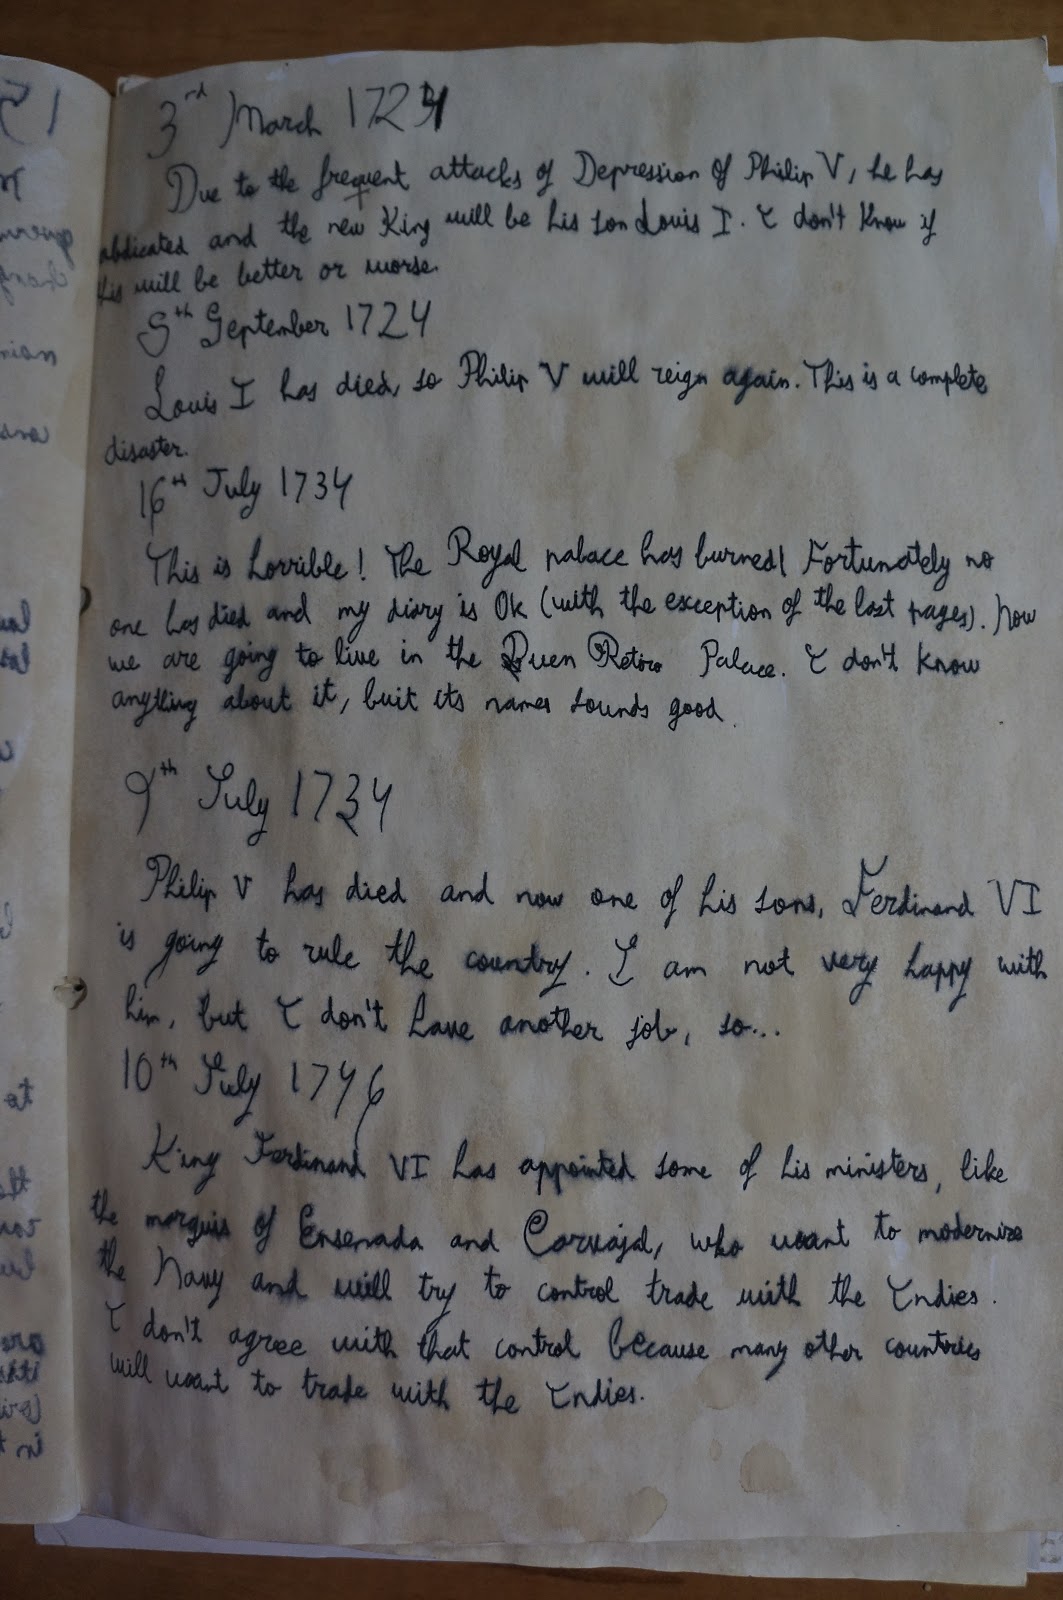 3rd March 1724
Due to the frequent attacks of Depression of Philip V, he has
abdicated and the new King will be his son Louis I. I don't know if
this will be better or worse.
5th September 1724
Louis I has died, so Philip V will reign again. This is a complete
disaster.
16th July 1734
This is horrible! The Royal palace has burned! Fortunately no
one has died and my diary is Ok (with the exception of the last pages). Now
we are going to live in the Buen Retiro Palace. I don't know
anything about it, buit its names sounds good.
9th July 1734
Philip V has died and now one of his sons, Ferdinand VI
is going to rule the country. I am not very happy with
him, but I don't have another job, so...
10th July 1746
King Ferdinand VI has appointed some of his ministers, like
the marquis of Ensenada and Carvajal, who want to modernize
the Navy and will try to control trade with the Indies.
I don't agree with that control because many other countries
will want to trade with the Indies.